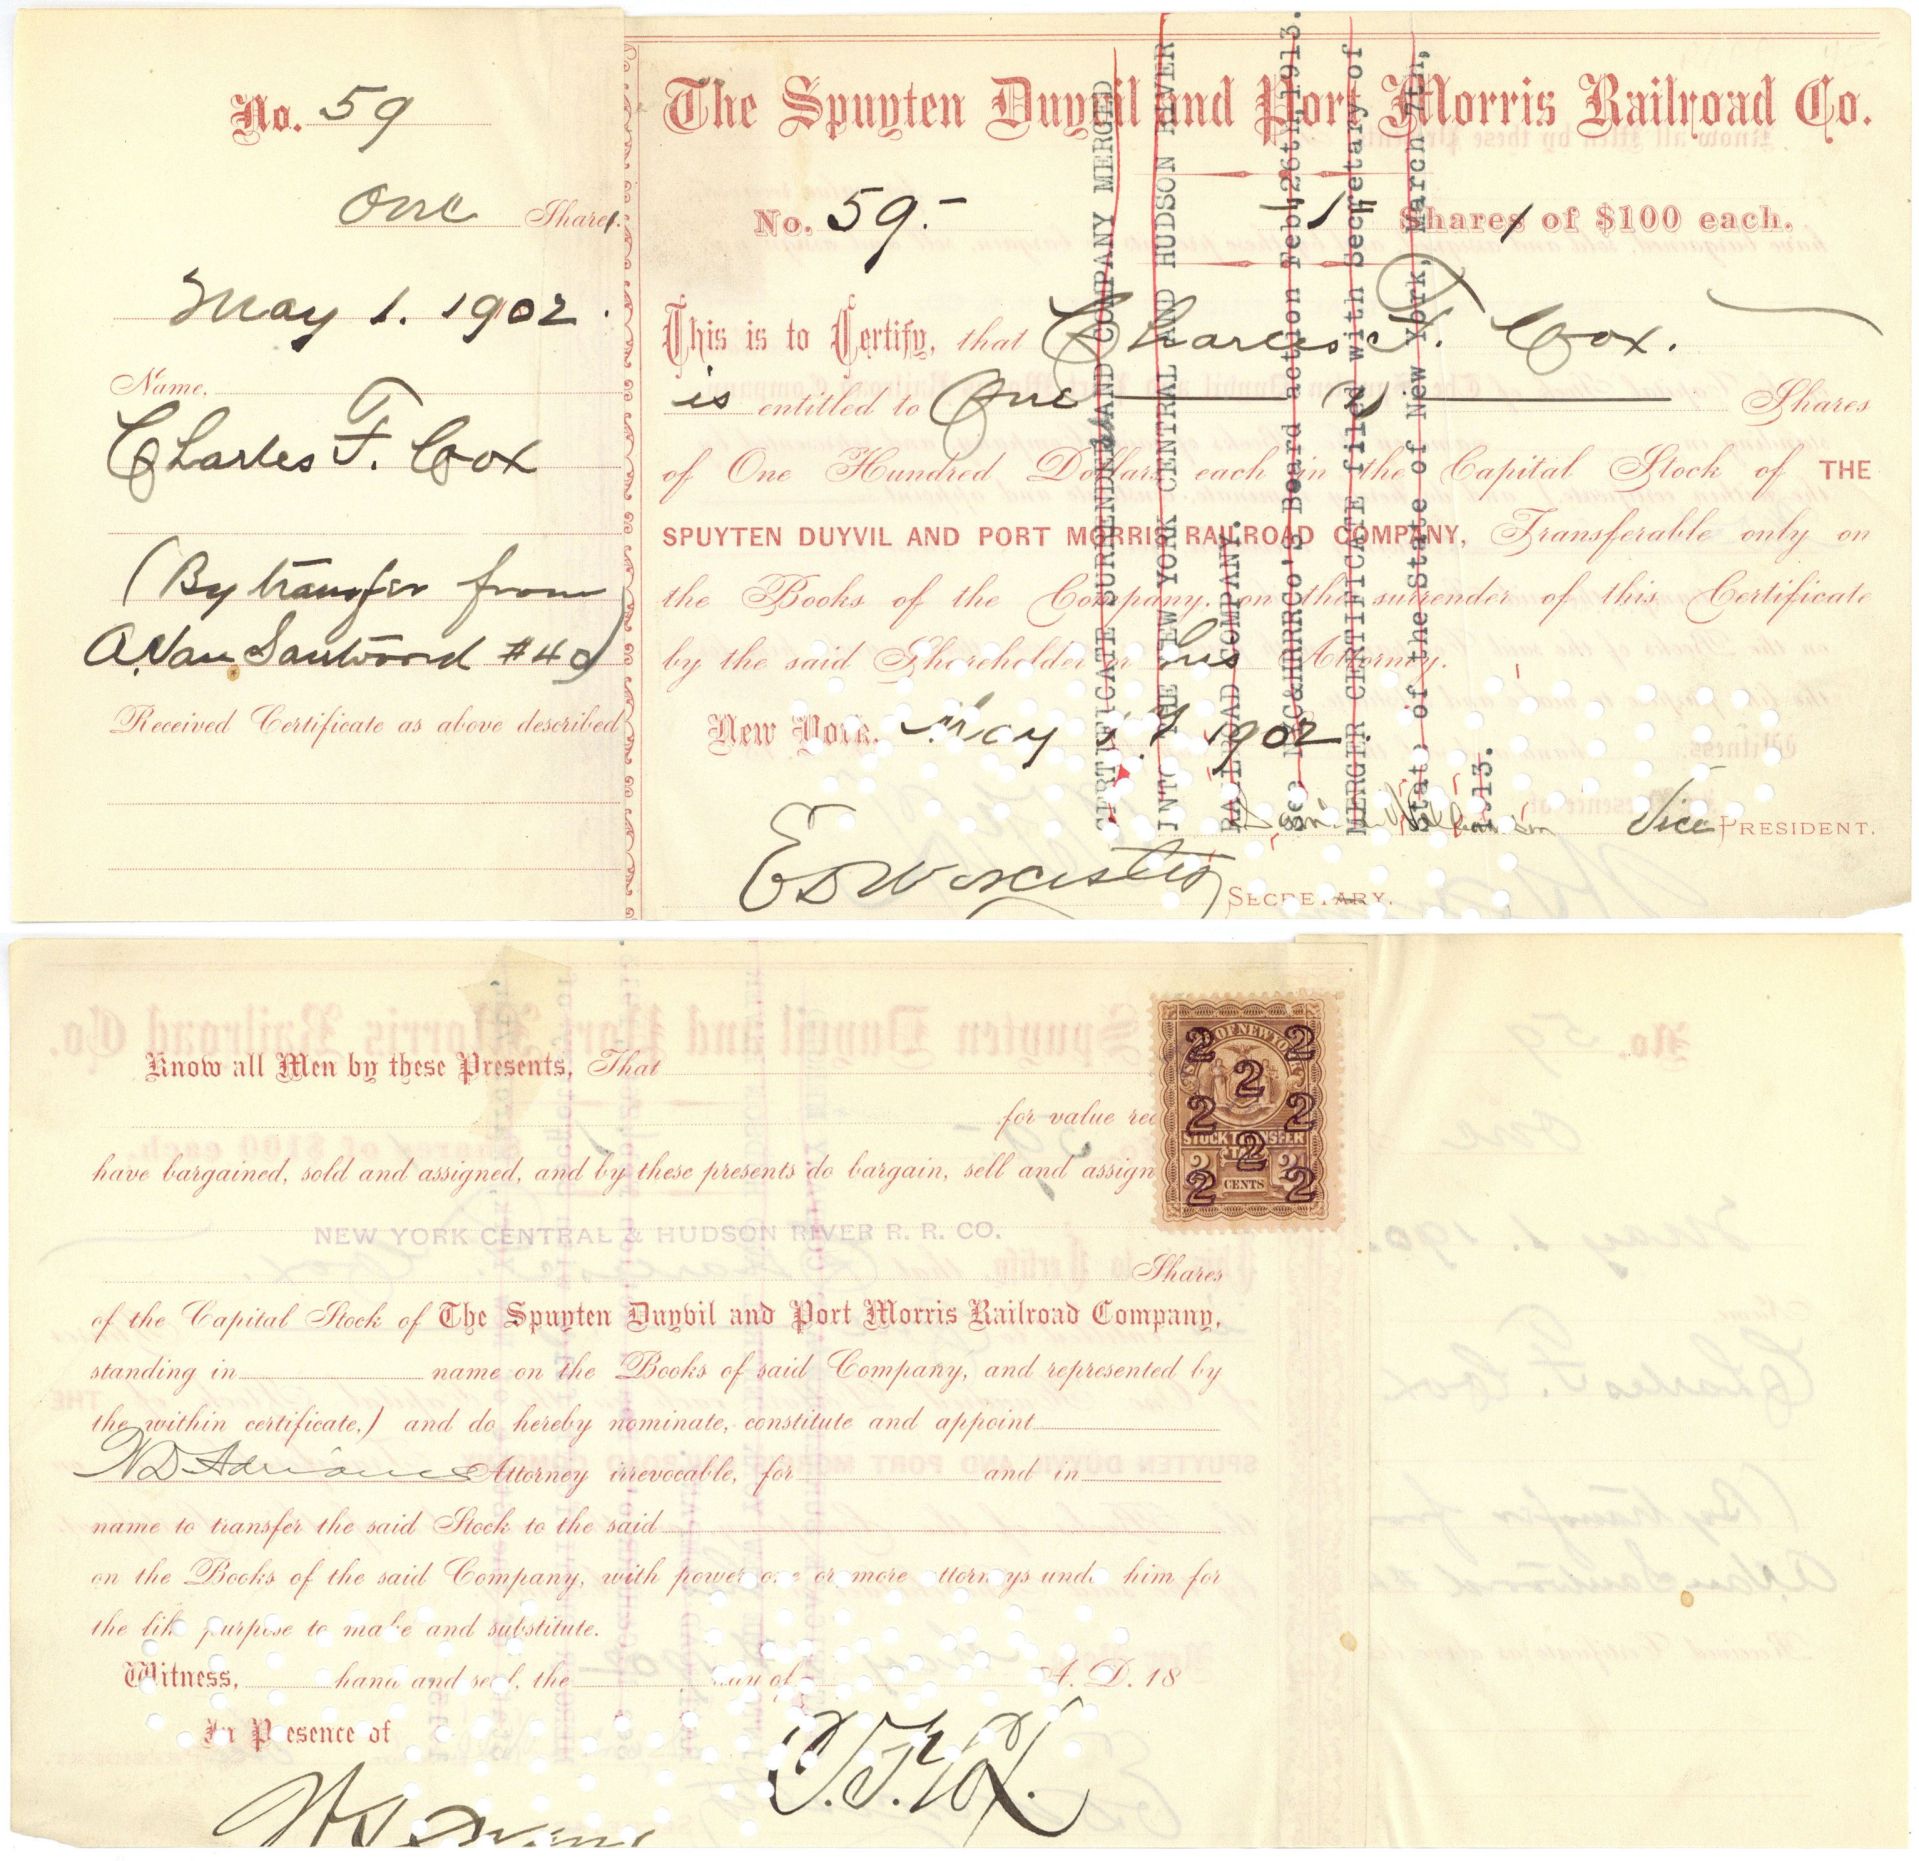 No. 59
One Share
May 1. 1902.
Name.
Charles F. Cox
(By transfer from
A. Van Santvoord #40)
Received Certificate as above described
The Spuyten Duyvil and Port Morris Railroad Co.
No. 59.- 1 Shares of $100 each.
This is to Certify, that Charles F. Cox.
is entitled to One (1) Shares
of One Hundred Dollars each in the Capital Stock of THE
SPUYTEN DUYVIL AND PORT MORRIS RAILROAD COMPANY, Transferable only on
the Books of the Company, on the surrender of this Certificate
by the said Shareholder or his Attorney.
New York. May 1st 1902.
Vice PRESIDENT.
E D Worcester
SECRETARY.
CERTIFICATE SURRENDERED AND COMPANY MERGED
INTO THE NEW YORK CENTRAL AND HUDSON RIVER
RAILROAD COMPANY.
See NYC&HRRRCo's Board action Feb. 26th, 1913.
MERGER CERTIFICATE filed with Secretary of
State of the State of New York, March 7th,
1913.
Know all Men by these Presents, That
for value rec
have bargained, sold and assigned, and by these presents do bargain, sell and assign
NEW YORK CENTRAL & HUDSON RIVER R. R. CO.
Shares
of the Capital Stock of The Spuyten Duyvil and Port Morris Railroad Company,
standing in name on the Books of said Company, and represented by
the within certificate,) and do hereby nominate, constitute and appoint
Attorney irrevocable, for and in
name to transfer the said Stock to the said
on the Books of the said Company, with power one or more attorneys under him for
the like purpose to make and substitute.
Witness, hand and seal, the day of A. D. 18
In Presence of
C. F. Cox.
STATE OF NEW YORK
STOCK TRANSFER
TAX
2 CENTS 2
2 2 2 2 2 2 2 2